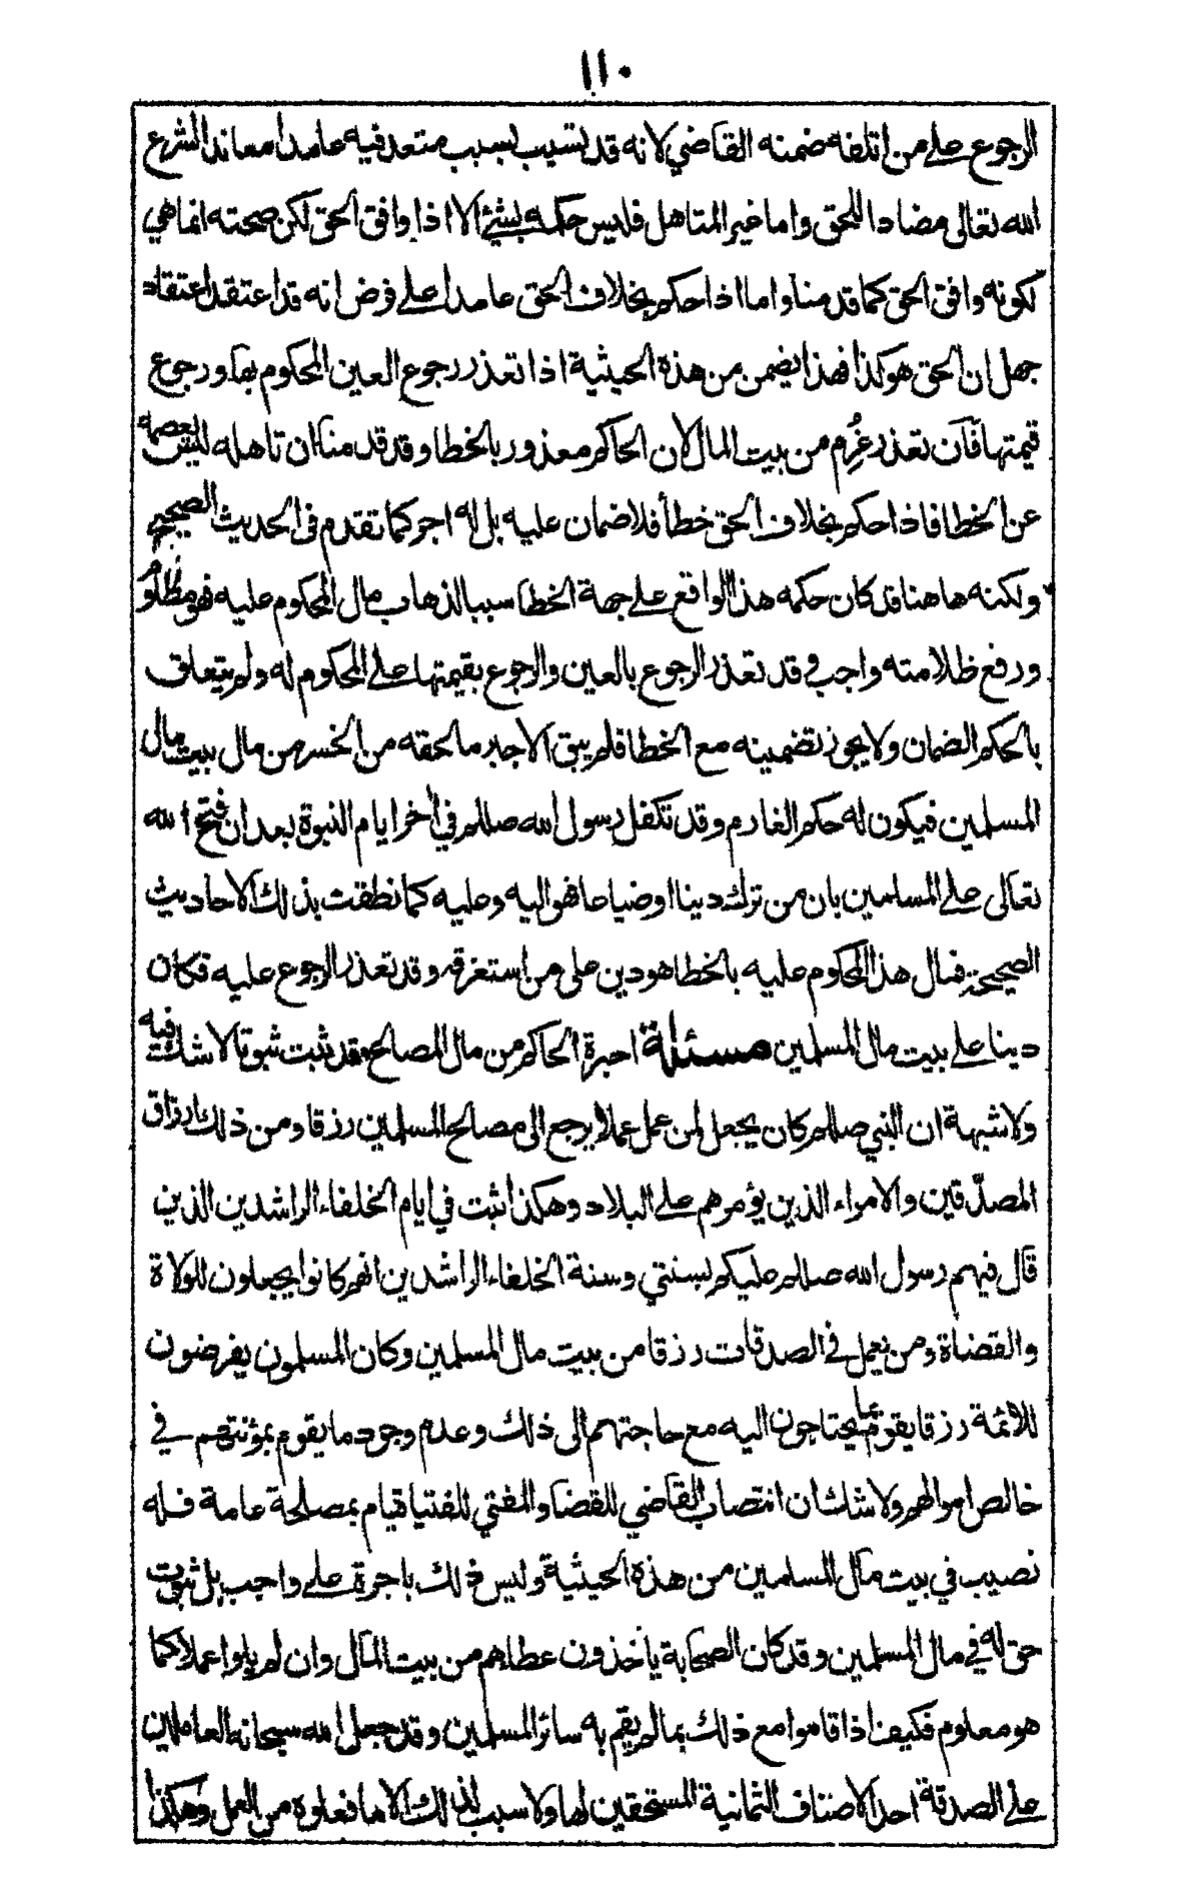 ١١٠
الرجوع على من اتلفه ضمنه القاضي لانه قد تسبب بسبب متعد فيه عامدا معاندا لشرع
الله تعالى مضادا للحق واما غير المتاهل فليس حكمه بشئ الا اذا وافق الحق لكن صحته انما هي
لكونه وافق الحق كما قدمنا واما اذا حكم بخلاف الحق عامدا على فرض انه قد اعتقد اعتقاد
جهل ان الحق هو كذا فهذا يضمن من هذه الحيثية اذا تعذر رجوع العين المحكوم بها ورجوع
قيمتها فان تعذر غُرِم من بيت المال لان الحاكم معذور بالخطا وقد قدمنا ان تاهله ليس بعصمه
عن الخطا فاذا حكم بخلاف الحق خطأ فلا ضمان عليه بل له اجر كما تقدم في الحديث الصحيح
ولكنه هاهنا قد كان حكمه هذا الواقع على جهة الخطا سببا لذهاب مال المحكوم عليه فهو مظلوم
ورفع ظلامته واجب وقد تعذر الرجوع بالعين والرجوع بقيمتها على المحكوم له ولم يتعلق
بالحاكم الضمان ولا يجوز تضمينه مع الخطا فلم يبق الا جبر ما لحقه من الخسر من مال بيت مال
المسلمين فيكون له حكم الغارم وقد تكفل رسول الله صللم في أخر ايام النبوة بعد ان فتح الله
تعالى على المسلمين بان من ترك دينا او ضياعا فهو اليه وعليه كما نطقت بذلك الاحاديث
الصحيحة فمال هذا المحكوم عليه بالخطا هو دين على من استغرقه وقد تعذر الرجوع عليه فكان
دينا على بيت مال المسلمين مسئلة اجرة الحاكم من مال المصالح وقد ثبت ثبوتا لا شك فيه
ولا شبهة ان النبي صللم كان يجعل لمن عمل عملا يرجع الى مصالح المسلمين رزقا ومن ذلك ارزاق
المصدّقين والامراء الذين يؤمرهم على البلاد وهكذا ثبت في ايام الخلفاء الراشدين الذين
قال فيهم رسول الله صللم عليكم بسنتي وسنة الخلفاء الراشدين انهم كانوا يجعلون للولاة
والقضاة ومن يعمل في الصدقات رزقا من بيت مال المسلمين وكان المسلمون يفرضون
للائمة رزقا يقوم بما يحتاجون اليه مع حاجتهم الى ذلك وعدم وجود ما يقوم بمؤنتهم في
خالص اموالهم ولا شك ان انتصاب القاضي للقضا والمفتي للفتيا قيام بمصلحة عامة فله
نصيب في بيت مال المسلمين من هذه الحيثية وليس ذلك باجرة على واجب بل ثبوت
حق له في مال المسلمين وقد كان الصحابة ياخذون عطاهم من بيت المال وان لم يلوا عملا كما
هو معلوم فكيف اذا قاموا مع ذلك بما لم يقم به سائر المسلمين وقد جعل الله سبحانه العاملين
على الصدقة احد الاصناف الثمانية المستحقين لها ولا سبب لذلك الا ما فعلوه من العمل وهكذا